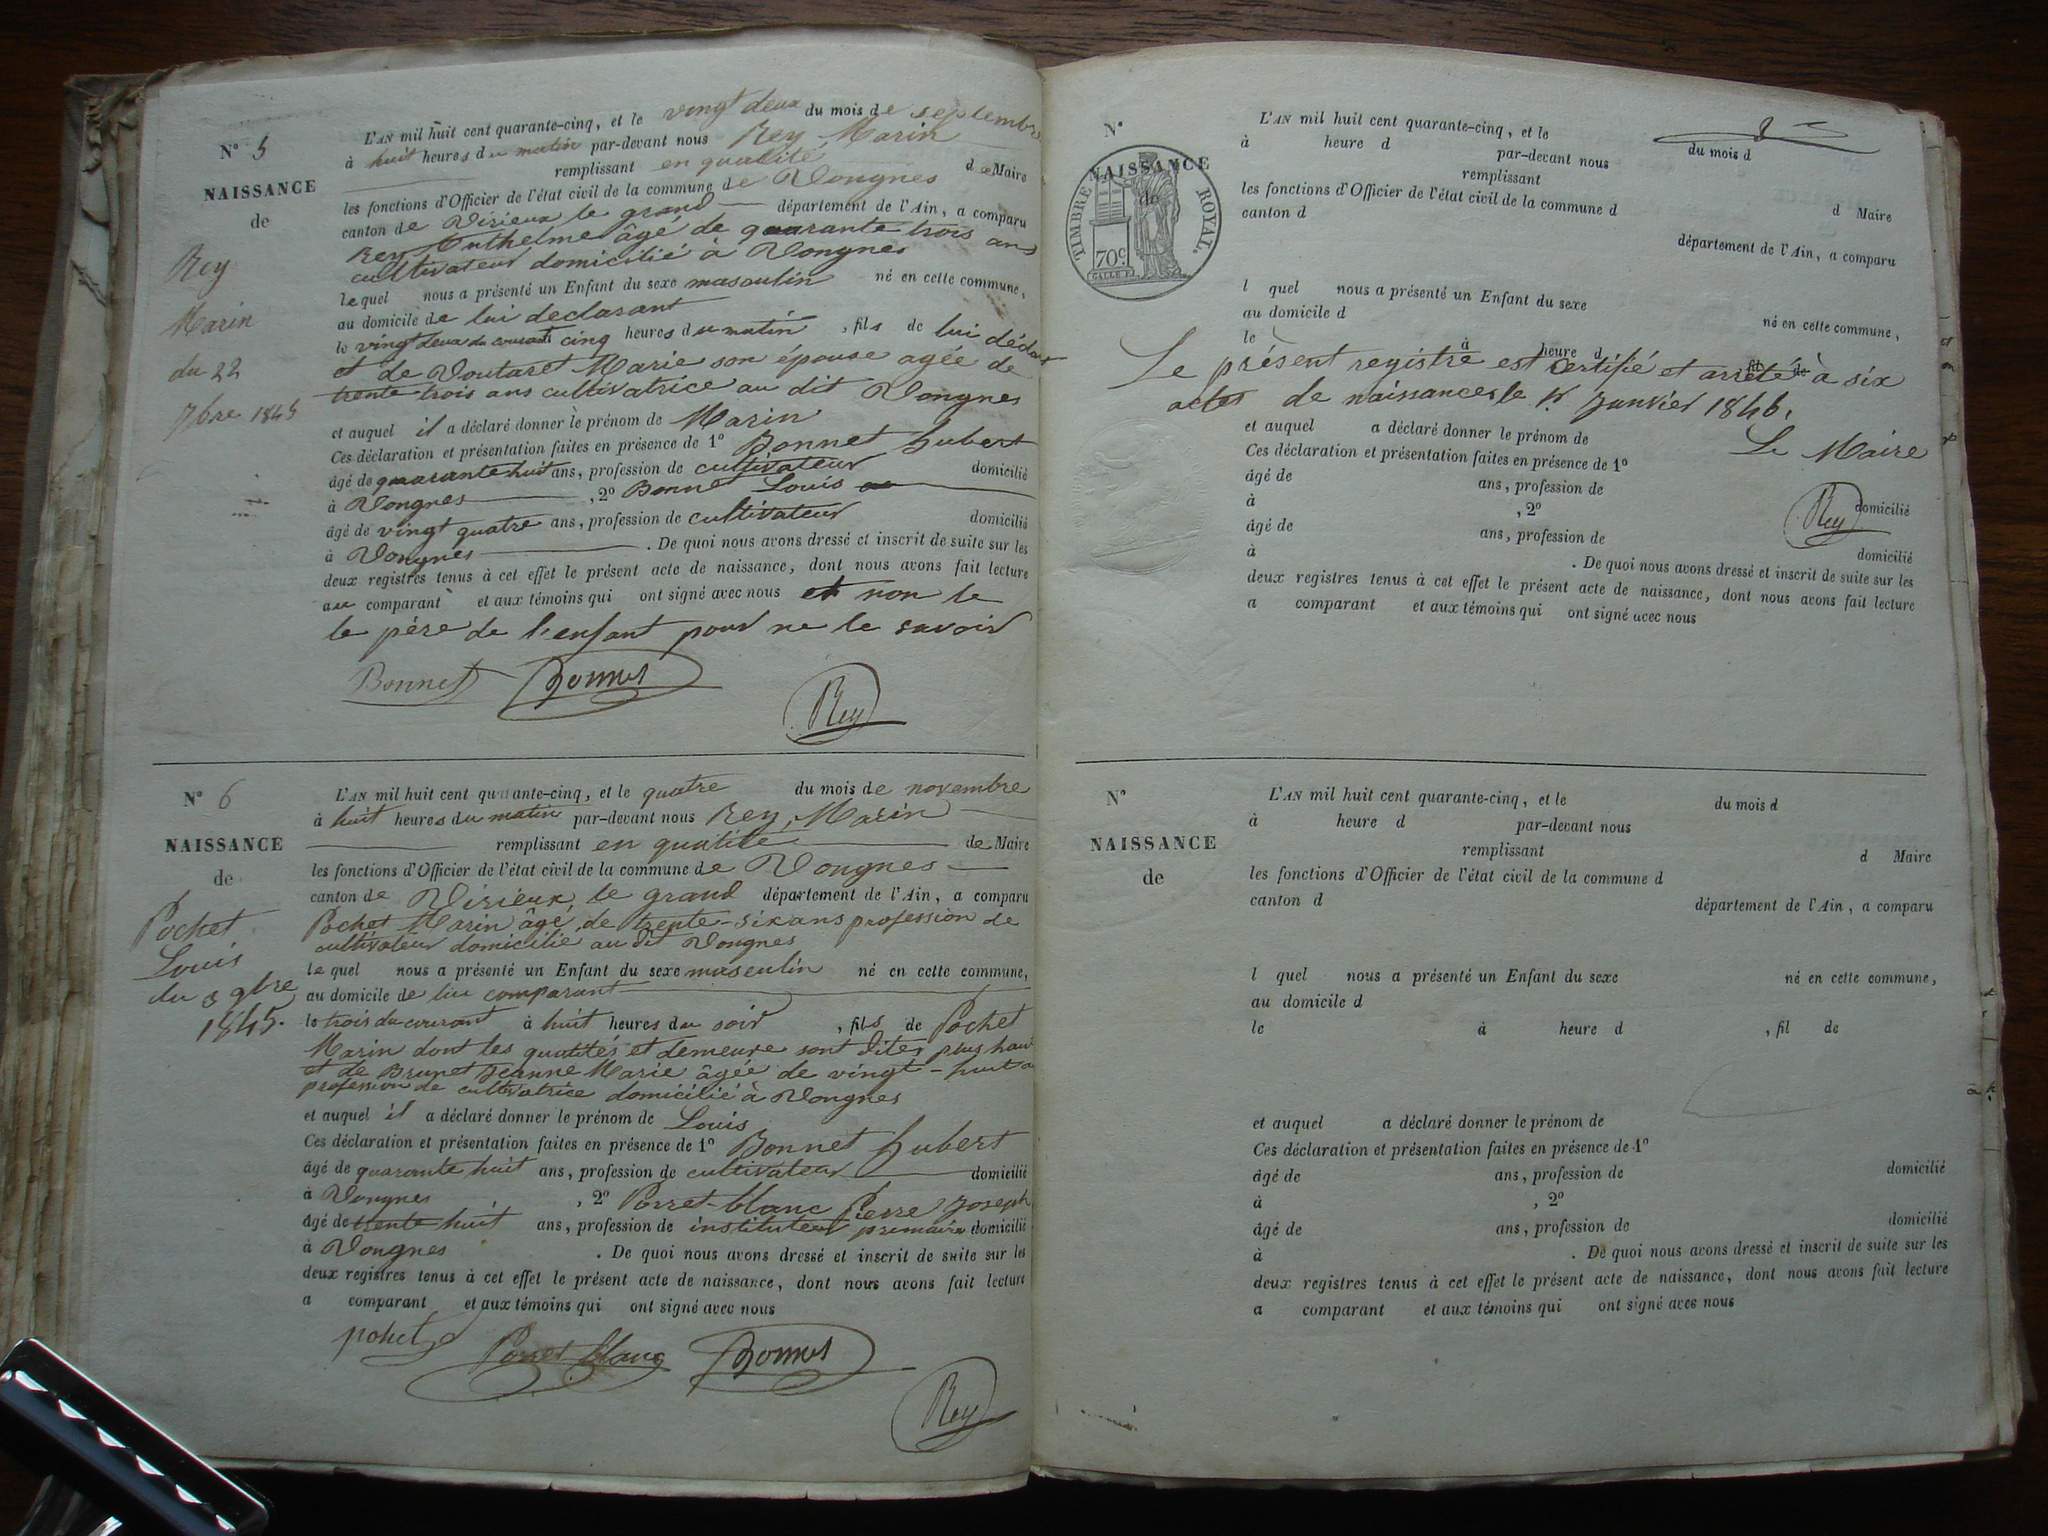 N° 5
NAISSANCE
de
Rey
Marin
du 22
7bre 1845
L'AN mil huit cent quarante-cinq, et le vingt deux du mois de septembre
à huit heures du matin par-devant nous Rey Marin
remplissant en qualité de Maire
les fonctions d'Officier de l'état civil de la commune de Vongnes
canton de Virieux le grand département de l'Ain, a comparu
Rey Anthelme âgé de quarante trois ans
cultivateur domicilié à Vongnes
lequel nous a présenté un Enfant du sexe masculin né en cette commune,
au domicile de lui declarant
le vingt deux du courant à cinq heures du matin, fils de lui déclarant
et de Voutaret Marie son épouse agée de
trente trois ans cultivatrice au dit Vongnes
et auquel il a déclaré donner le prénom de Marin
Ces déclaration et présentation faites en présence de 1° Bonnet hubert
âgé de quarante huit ans, profession de cultivateur domicilié
à Vongnes, 2° Bonnet Louis
âgé de vingt quatre ans, profession de cultivateur domicilié
à Vongnes. De quoi nous avons dressé et inscrit de suite sur les
deux registres tenus à cet effet le présent acte de naissance, dont nous avons fait lecture
au comparant et aux témoins qui ont signé avec nous et non le
le père de l'enfant pour ne le savoir
Bonnet Bonnet
Rey
N° 6
NAISSANCE
de
Pochet
Louis
du 3 9bre
1845.
L'AN mil huit cent quarante-cinq, et le quatre du mois de novembre
à huit heures du matin par-devant nous Rey, Marin
remplissant en qualité de Maire
les fonctions d'Officier de l'état civil de la commune de Vongnes
canton de Virieux le grand département de l'Ain, a comparu
Pochet Marin âgé de trente-six ans profession de
cultivateur domicilié au dit Vongnes
lequel nous a présenté un Enfant du sexe masculin né en cette commune,
au domicile de lui comparant
le trois du courant à huit heures du soir, fils de Pochet
Marin dont les qualités et demeure sont dites plus haut
et de Brunet Jeanne Marie âgée de vingt-huit a
profession de cultivatrice domicilié à Vongnes
et auquel il a déclaré donner le prénom de Louis
Ces déclaration et présentation faites en présence de 1° Bonnet hubert
âgé de quarante huit ans, profession de cultivateur domicilié
à Vongnes, 2° Porret-blanc Pierre Joseph
âgé de trente huit ans, profession de instituteur primaire domicilié
à Vongnes. De quoi nous avons dressé et inscrit de suite sur les
deux registres tenus à cet effet le présent acte de naissance, dont nous avons fait lecture
a comparant et aux témoins qui ont signé avec nous
pohet Porret blanc Bonnet
Rey
N°
NAISSANCE
de
TIMBRE ROYAL.
70c.
L'AN mil huit cent quarante-cinq, et le du mois d
à heure d par-devant nous
remplissant d Maire
les fonctions d'Officier de l'état civil de la commune d
canton d département de l'Ain, a comparu
l quel nous a présenté un Enfant du sexe né en cette commune,
au domicile d
le à heure d , fil de
Le présent registre est certifié et arrêté à six
actes de naissances le 1r Janvier 1846.
et auquel a déclaré donner le prénom de
Le Maire
Ces déclaration et présentation faites en présence de 1°
âgé de ans, profession de domicilié
à , 2°
Rey
âgé de ans, profession de domicilié
à . De quoi nous avons dressé et inscrit de suite sur les
deux registres tenus à cet effet le présent acte de naissance, dont nous avons fait lecture
a comparant et aux témoins qui ont signé avec nous
N°
NAISSANCE
de
L'AN mil huit cent quarante-cinq, et le du mois d
à heure d par-devant nous
remplissant d Maire
les fonctions d'Officier de l'état civil de la commune d
canton d département de l'Ain, a comparu
l quel nous a présenté un Enfant du sexe né en cette commune,
au domicile d
le à heure d , fil de
et auquel a déclaré donner le prénom de
Ces déclaration et présentation faites en présence de 1°
âgé de ans, profession de domicilié
à , 2°
âgé de ans, profession de domicilié
à . De quoi nous avons dressé et inscrit de suite sur les
deux registres tenus à cet effet le présent acte de naissance, dont nous avons fait lecture
a comparant et aux témoins qui ont signé avec nous